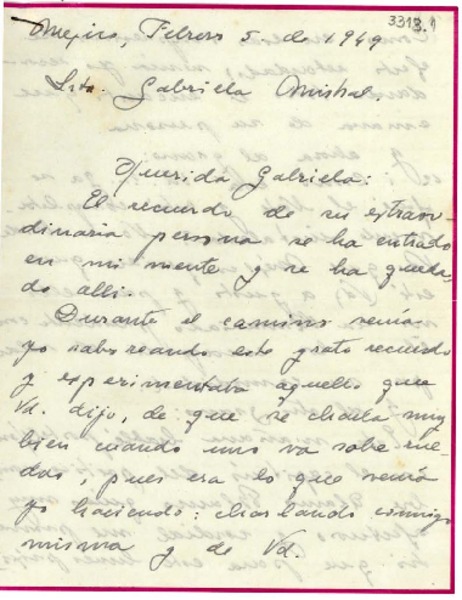 3313.1
Mejico, Febrero 5 de 1949
Srta. Gabriela Mistral.
Querida Gabriela:
El recuerdo de su extraor-
dinaria persona se ha entrado
en mi mente y se ha queda-
do alli.
Durante el camino venía
yo saboreando este grato recuerdo
y experimentaba aquello que
Vd. dijo, de que se charla muy
bien cuando uno va sobre rue-
das, pues era lo que venía
yo haciendo: charlando conmigo
misma y de Vd.